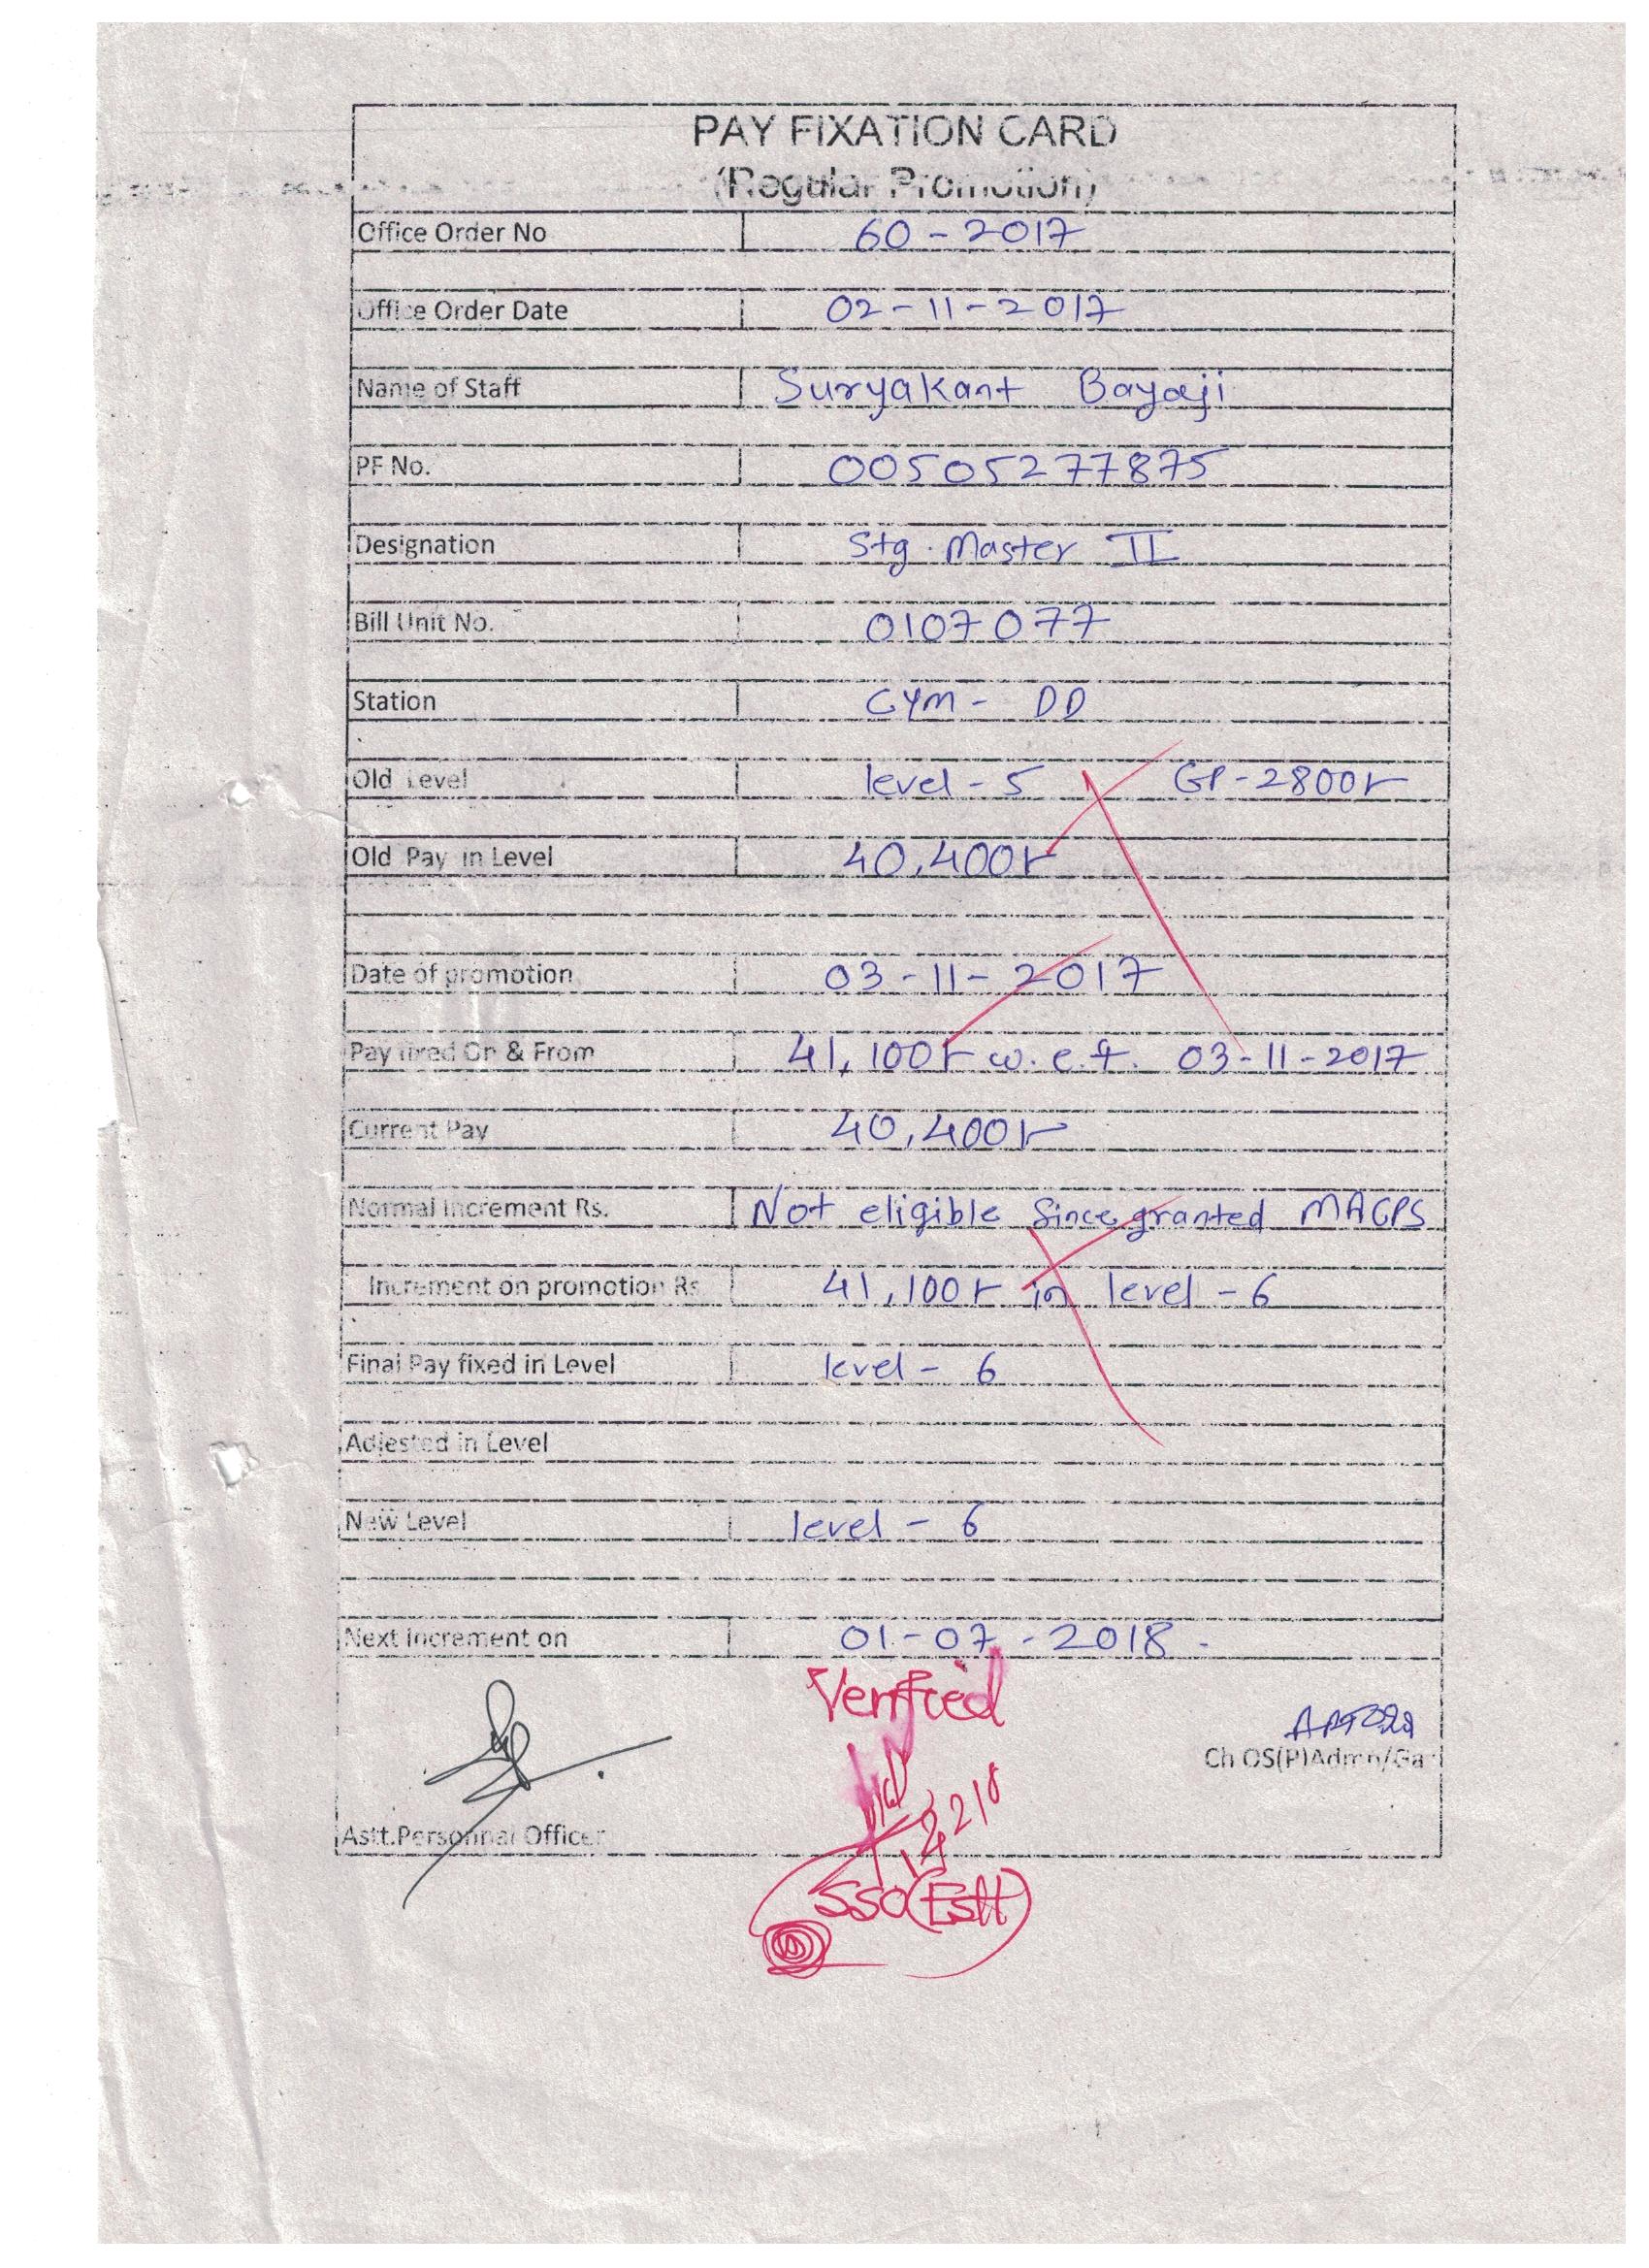 PAY FIXATION CARD
(Regular Promotion)
Office Order No 60-2017
Office Order Date 02-11-2017
Name of Staff Suryakant Bayaji
PF No. 00505277875
Designation Stg. Master II
Bill Unit No. 0107077
Station CYM- DD
Old Level level-5 GP-2800/-
Old Pay in Level 40,400/-
Date of promotion 03-11-2017
Pay fixed On & From 41,100/- w.e.f. 03-11-2017
Current Pay 40,400/-
Normal Increment Rs. Not eligible Since granted MACPS
Increment on promotion Rs 41,100/- in level-6
Final Pay fixed in Level level-6
Adjested in Level
New Level level-6
Next Increment on 01-07-2018
Verified
Ch OS(P)Admn/Ga
Astt.Personnal Officer
SSO(Estt)